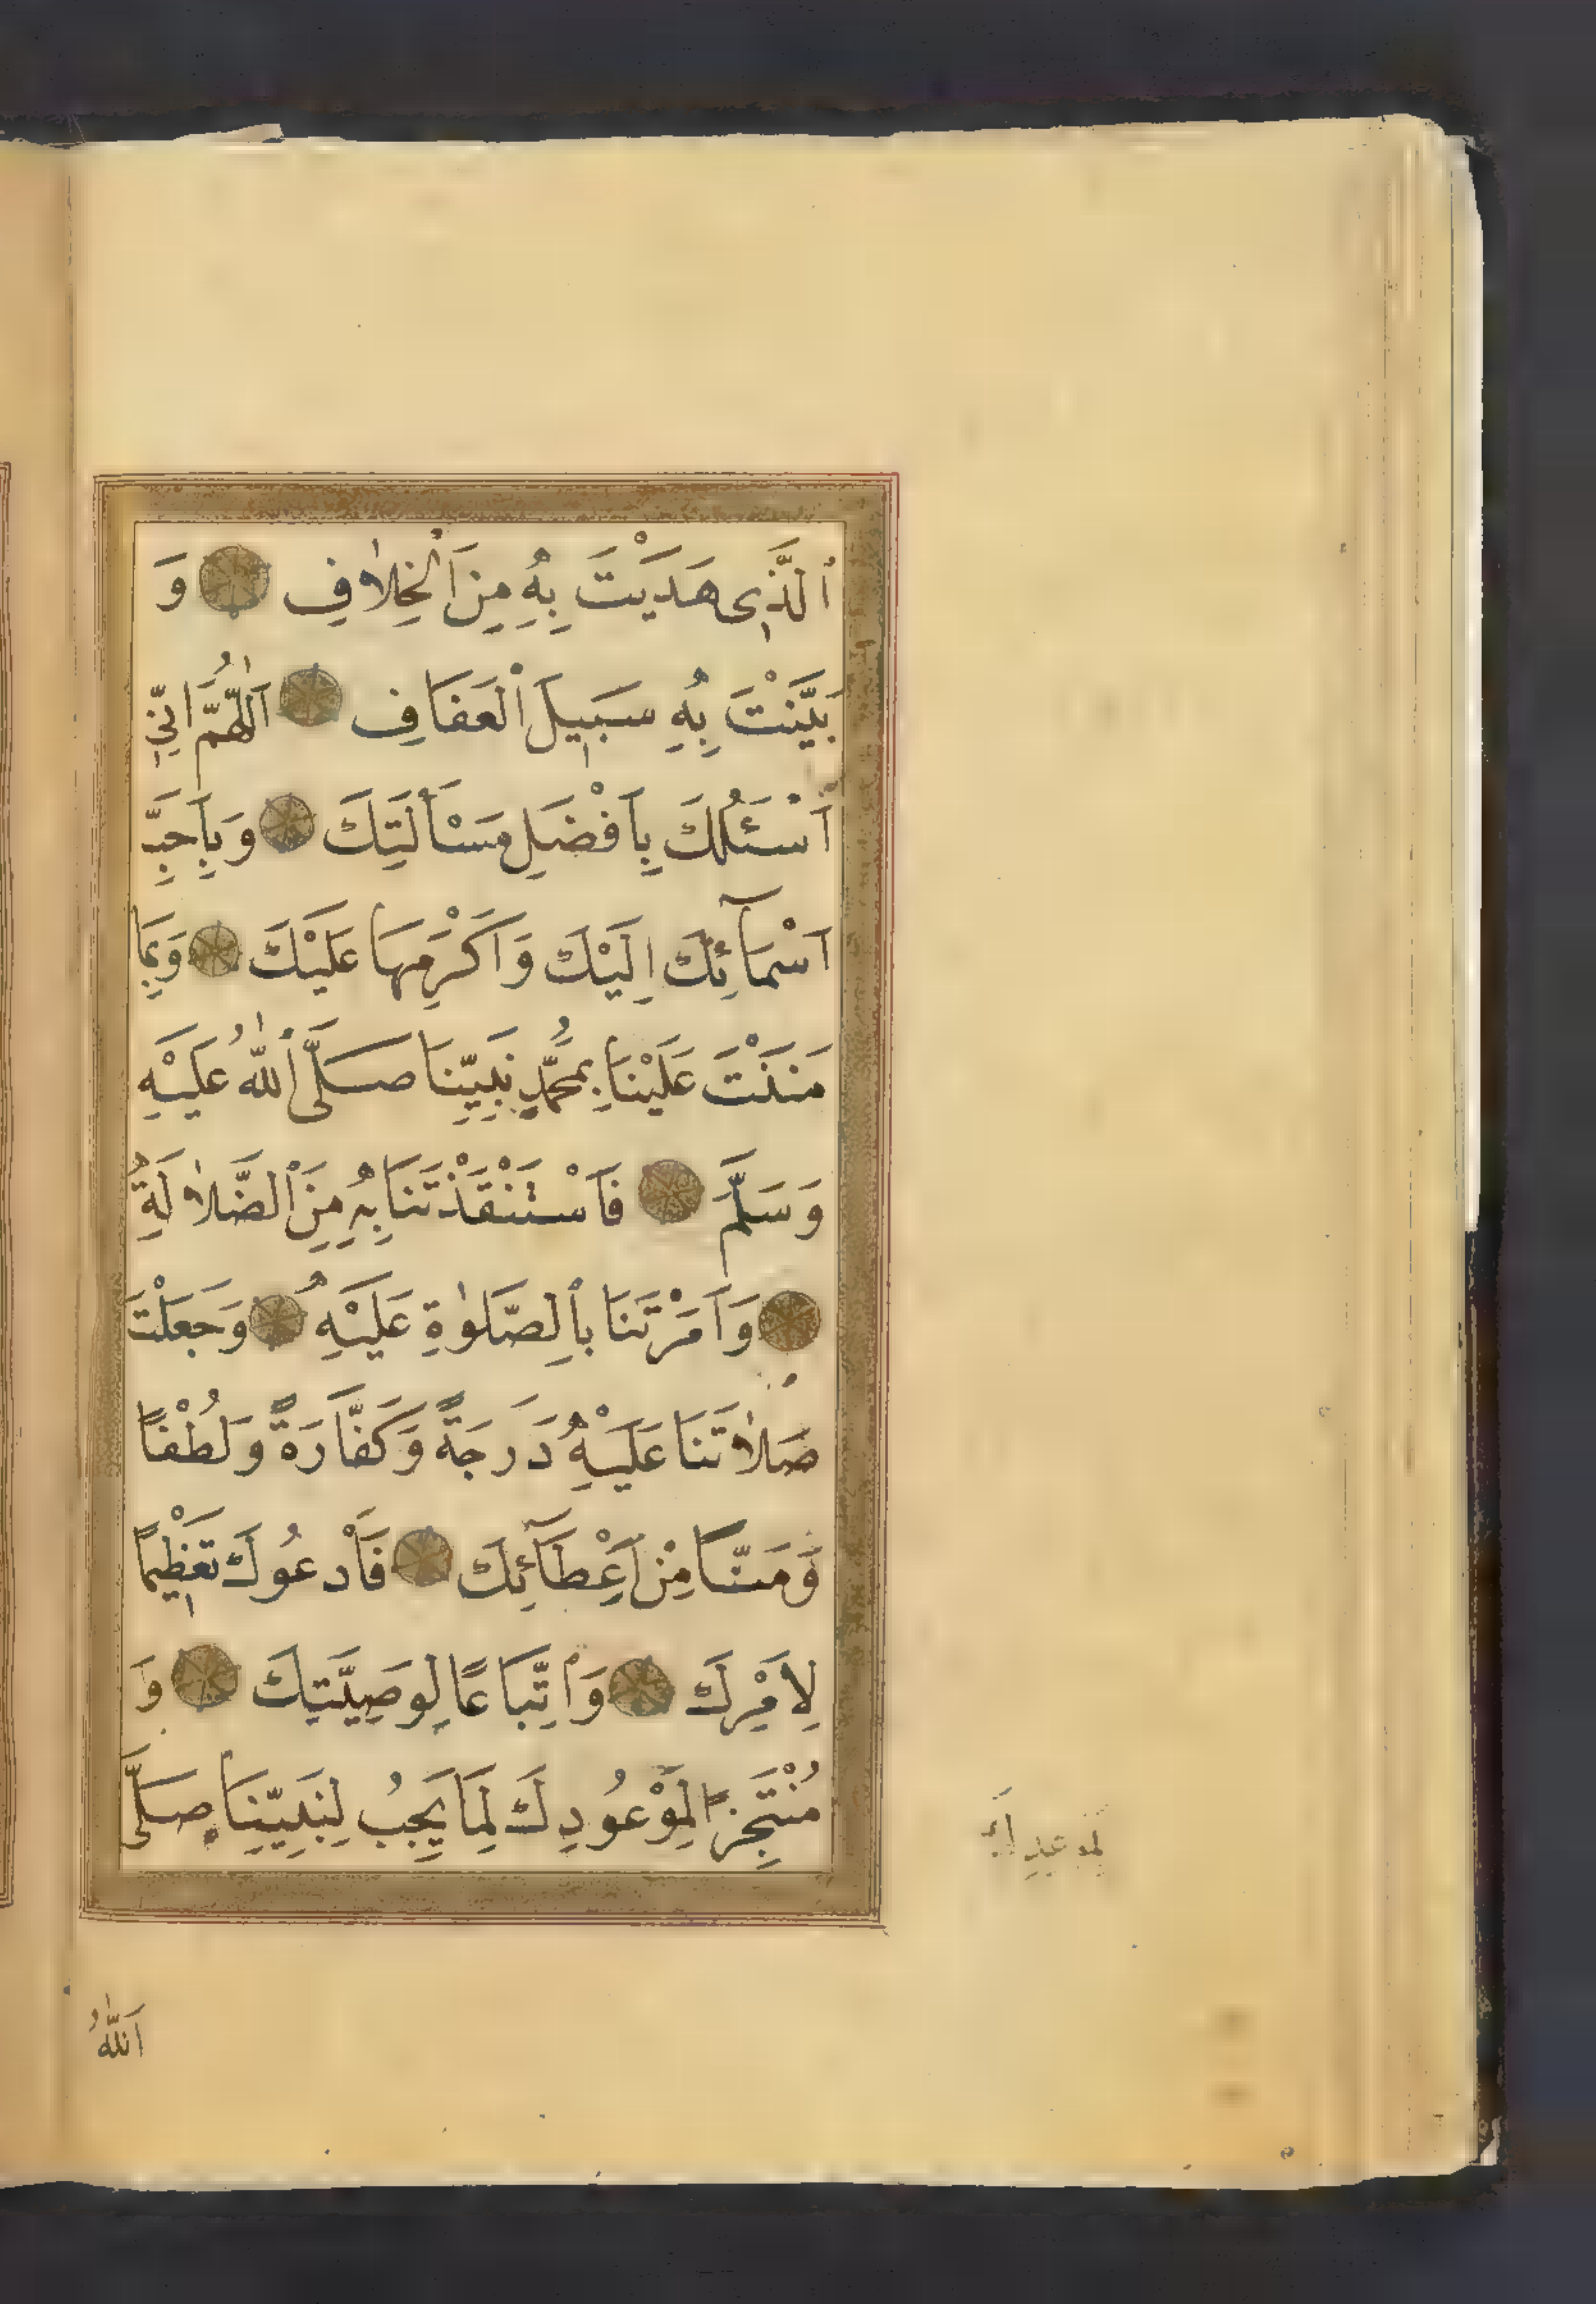 اَلَّذِى هَدَيْتَ بِهِ مِنَ الْخِلَافِ وَ
بَيَّنْتَ بِهِ سَبِيلَ الْعَفَافِ اَللّٰهُمَّ اِنِّي
اَسْئَلُكَ بِاَفْضَلِ مَسْأَلَتِكَ وَبِاَحَبِّ
اَسْمَآئِكَ اِلَيْكَ وَاَكْرَمِهَا عَلَيْكَ وَبِمَا
مَنَنْتَ عَلَيْنَا بِمُحَمَّدٍ نَبِيِّنَا صَلَّى اللّٰهُ عَلَيْهِ
وَسَلَّمَ فَاسْتَنْقَذْتَنَا بِهِ مِنَ الضَّلَالَةِ
وَاَمَرْتَنَا بِالصَّلٰوةِ عَلَيْهِ وَجَعَلْتَ
صَلَاتَنَا عَلَيْهِ دَرَجَةً وَكَفَّارَةً وَلُطْفًا
وَمَنًّا مِنْ اَعْطَآئِكَ فَاَدْعُوكَ تَعْظِيمًا
لِاَمْرِكَ وَاتِّبَاعًا لِوَصِيَّتِكَ وَ
مُنْتَجِزًا لِمَوْعُودِكَ لِمَا يَجِبُ لِنَبِيِّنَا صَلَّى
لموعدك
اَللّٰهُ